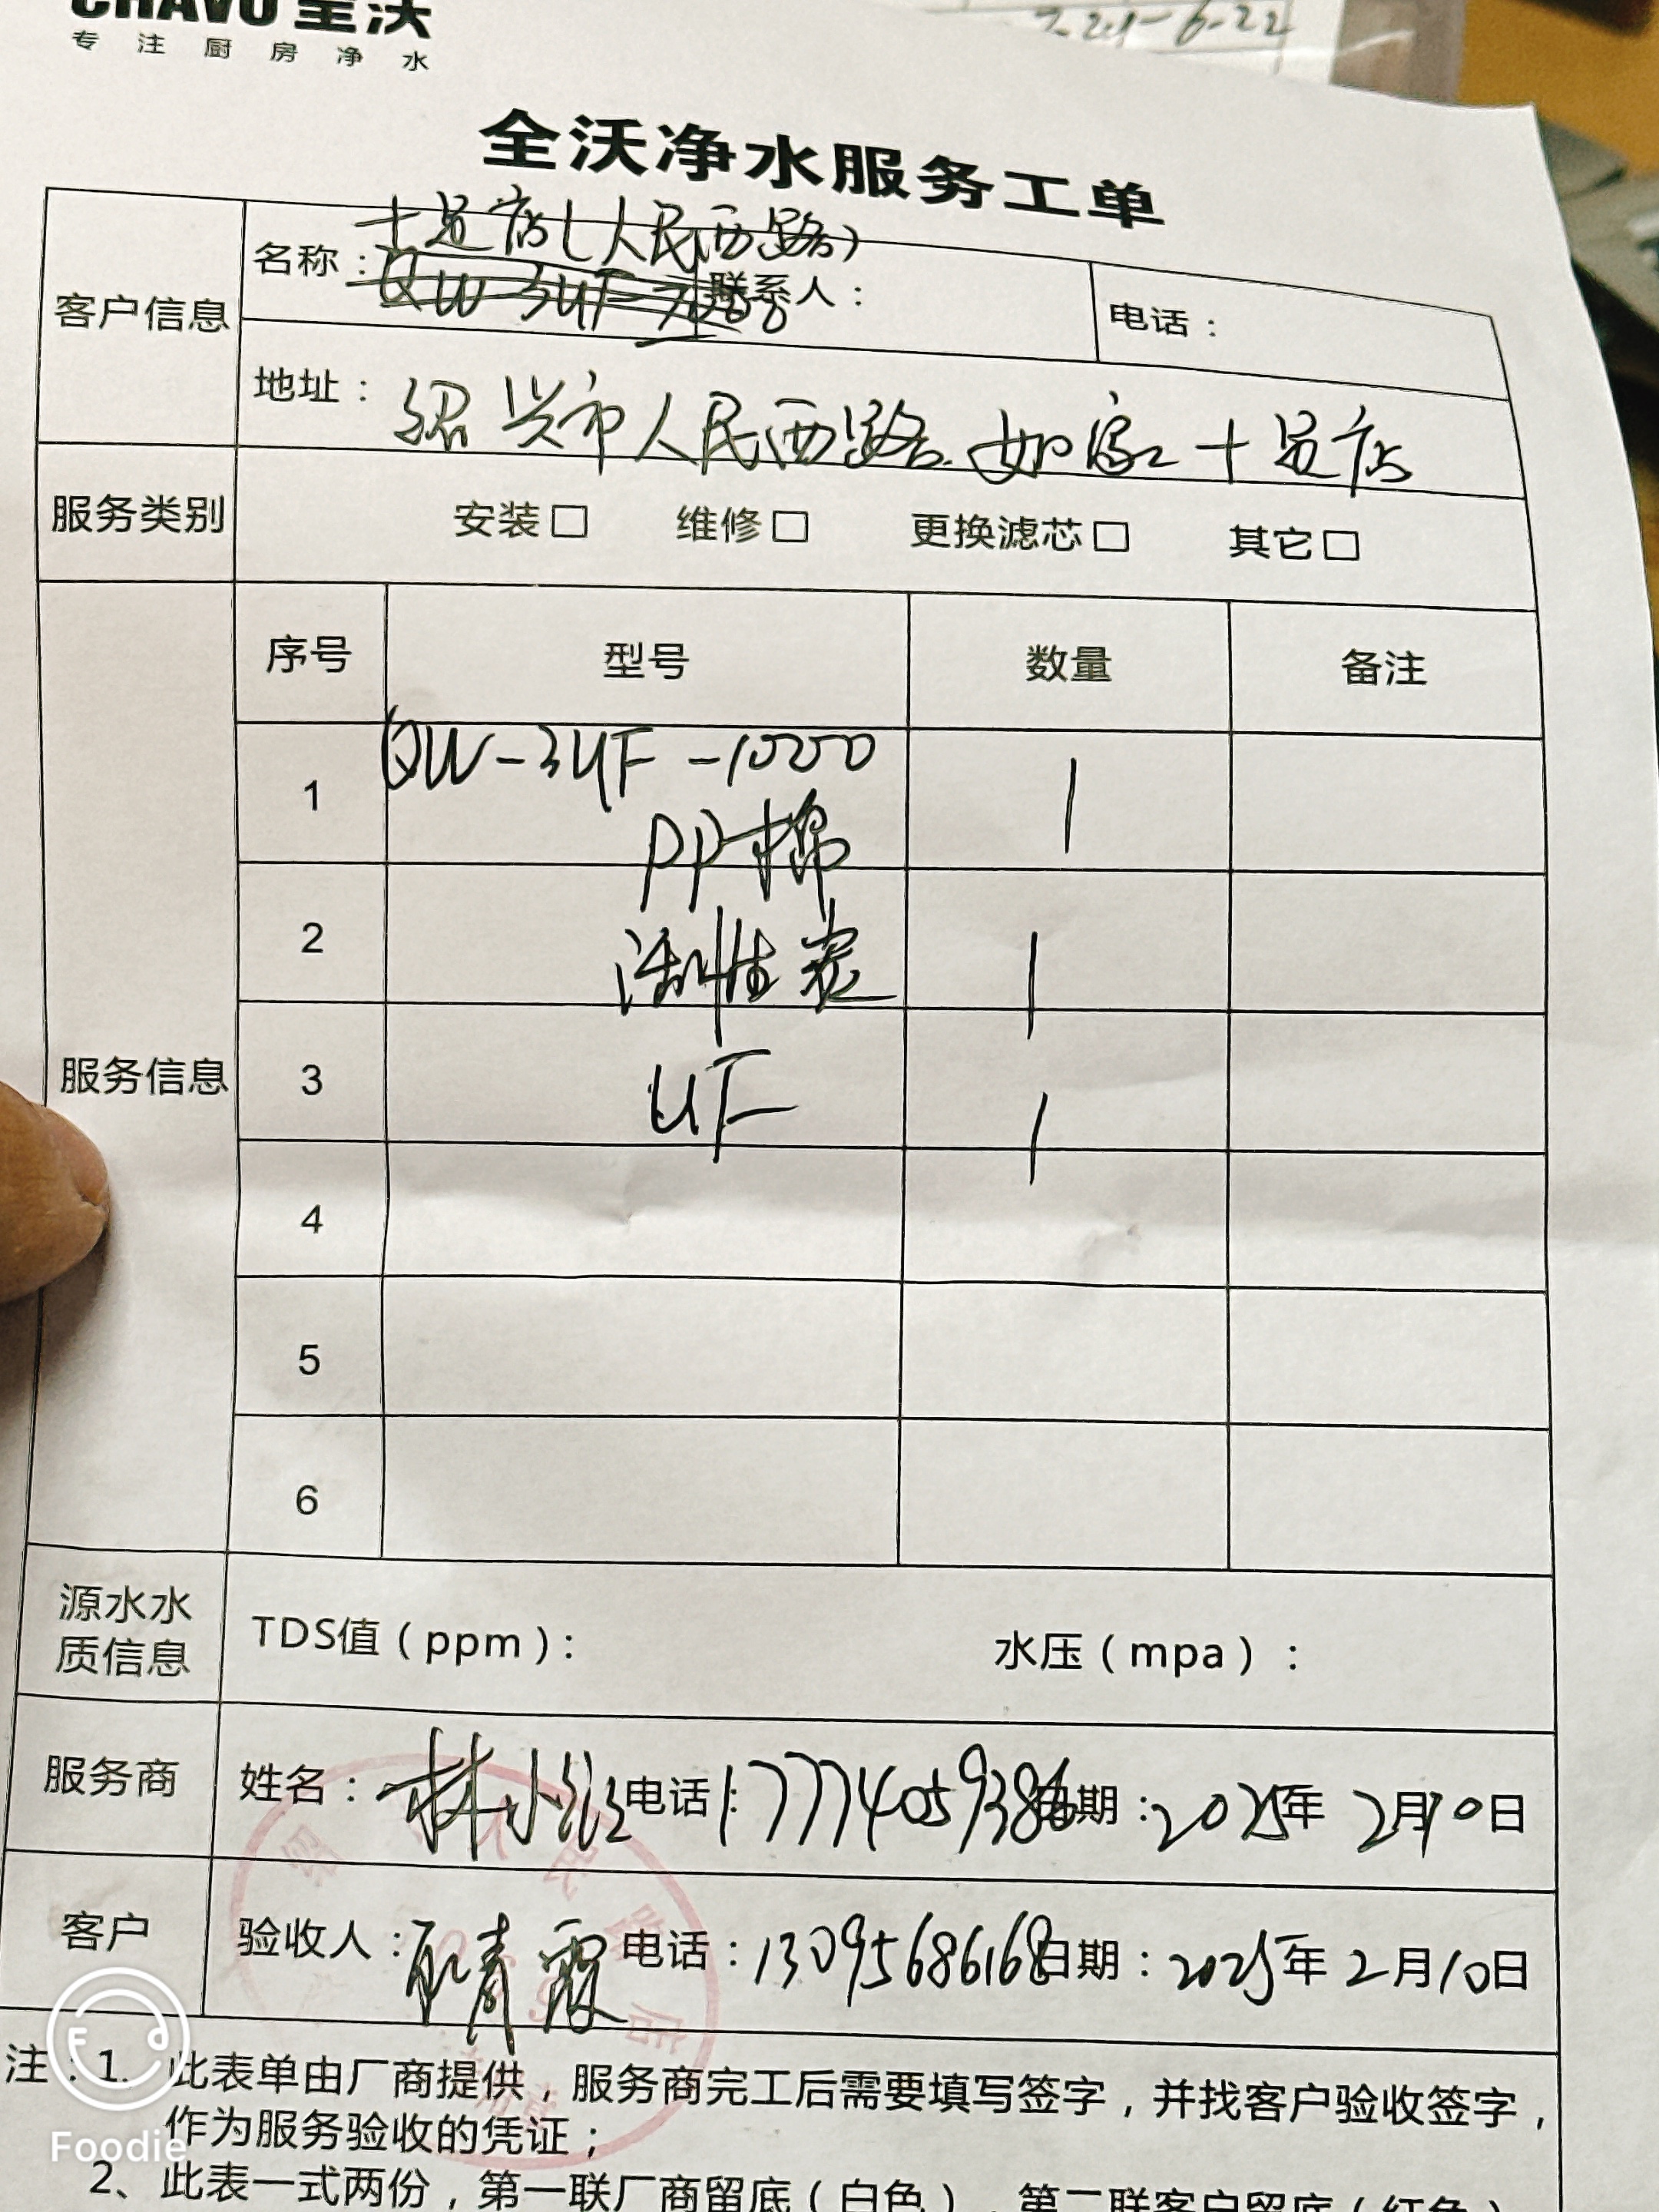 CHAVO 全沃
专注厨房净水
全沃净水服务工单
客户信息
名称：十足店（人民西路）
联系人：
电话：
地址：绍兴市人民西路 如家十足店
服务类别 安装□ 维修□ 更换滤芯□ 其它□
服务信息
序号 型号 数量 备注
1 QW-3UF-1000 PP棉 1
2 活性炭 1
3 UF 1
4
5
6
源水水质信息 TDS值（ppm）： 水压（mpa）：
服务商 姓名：林小 电话：17774059386 日期：2025年2月10日
客户 验收人：青霞 电话：13095686168 日期：2025年2月10日
注：1、此表单由厂商提供，服务商完工后需要填写签字，并找客户验收签字，
作为服务验收的凭证；
2、此表一式两份，第一联厂商留底（白色），第二联客户留底（红色）
Foodie